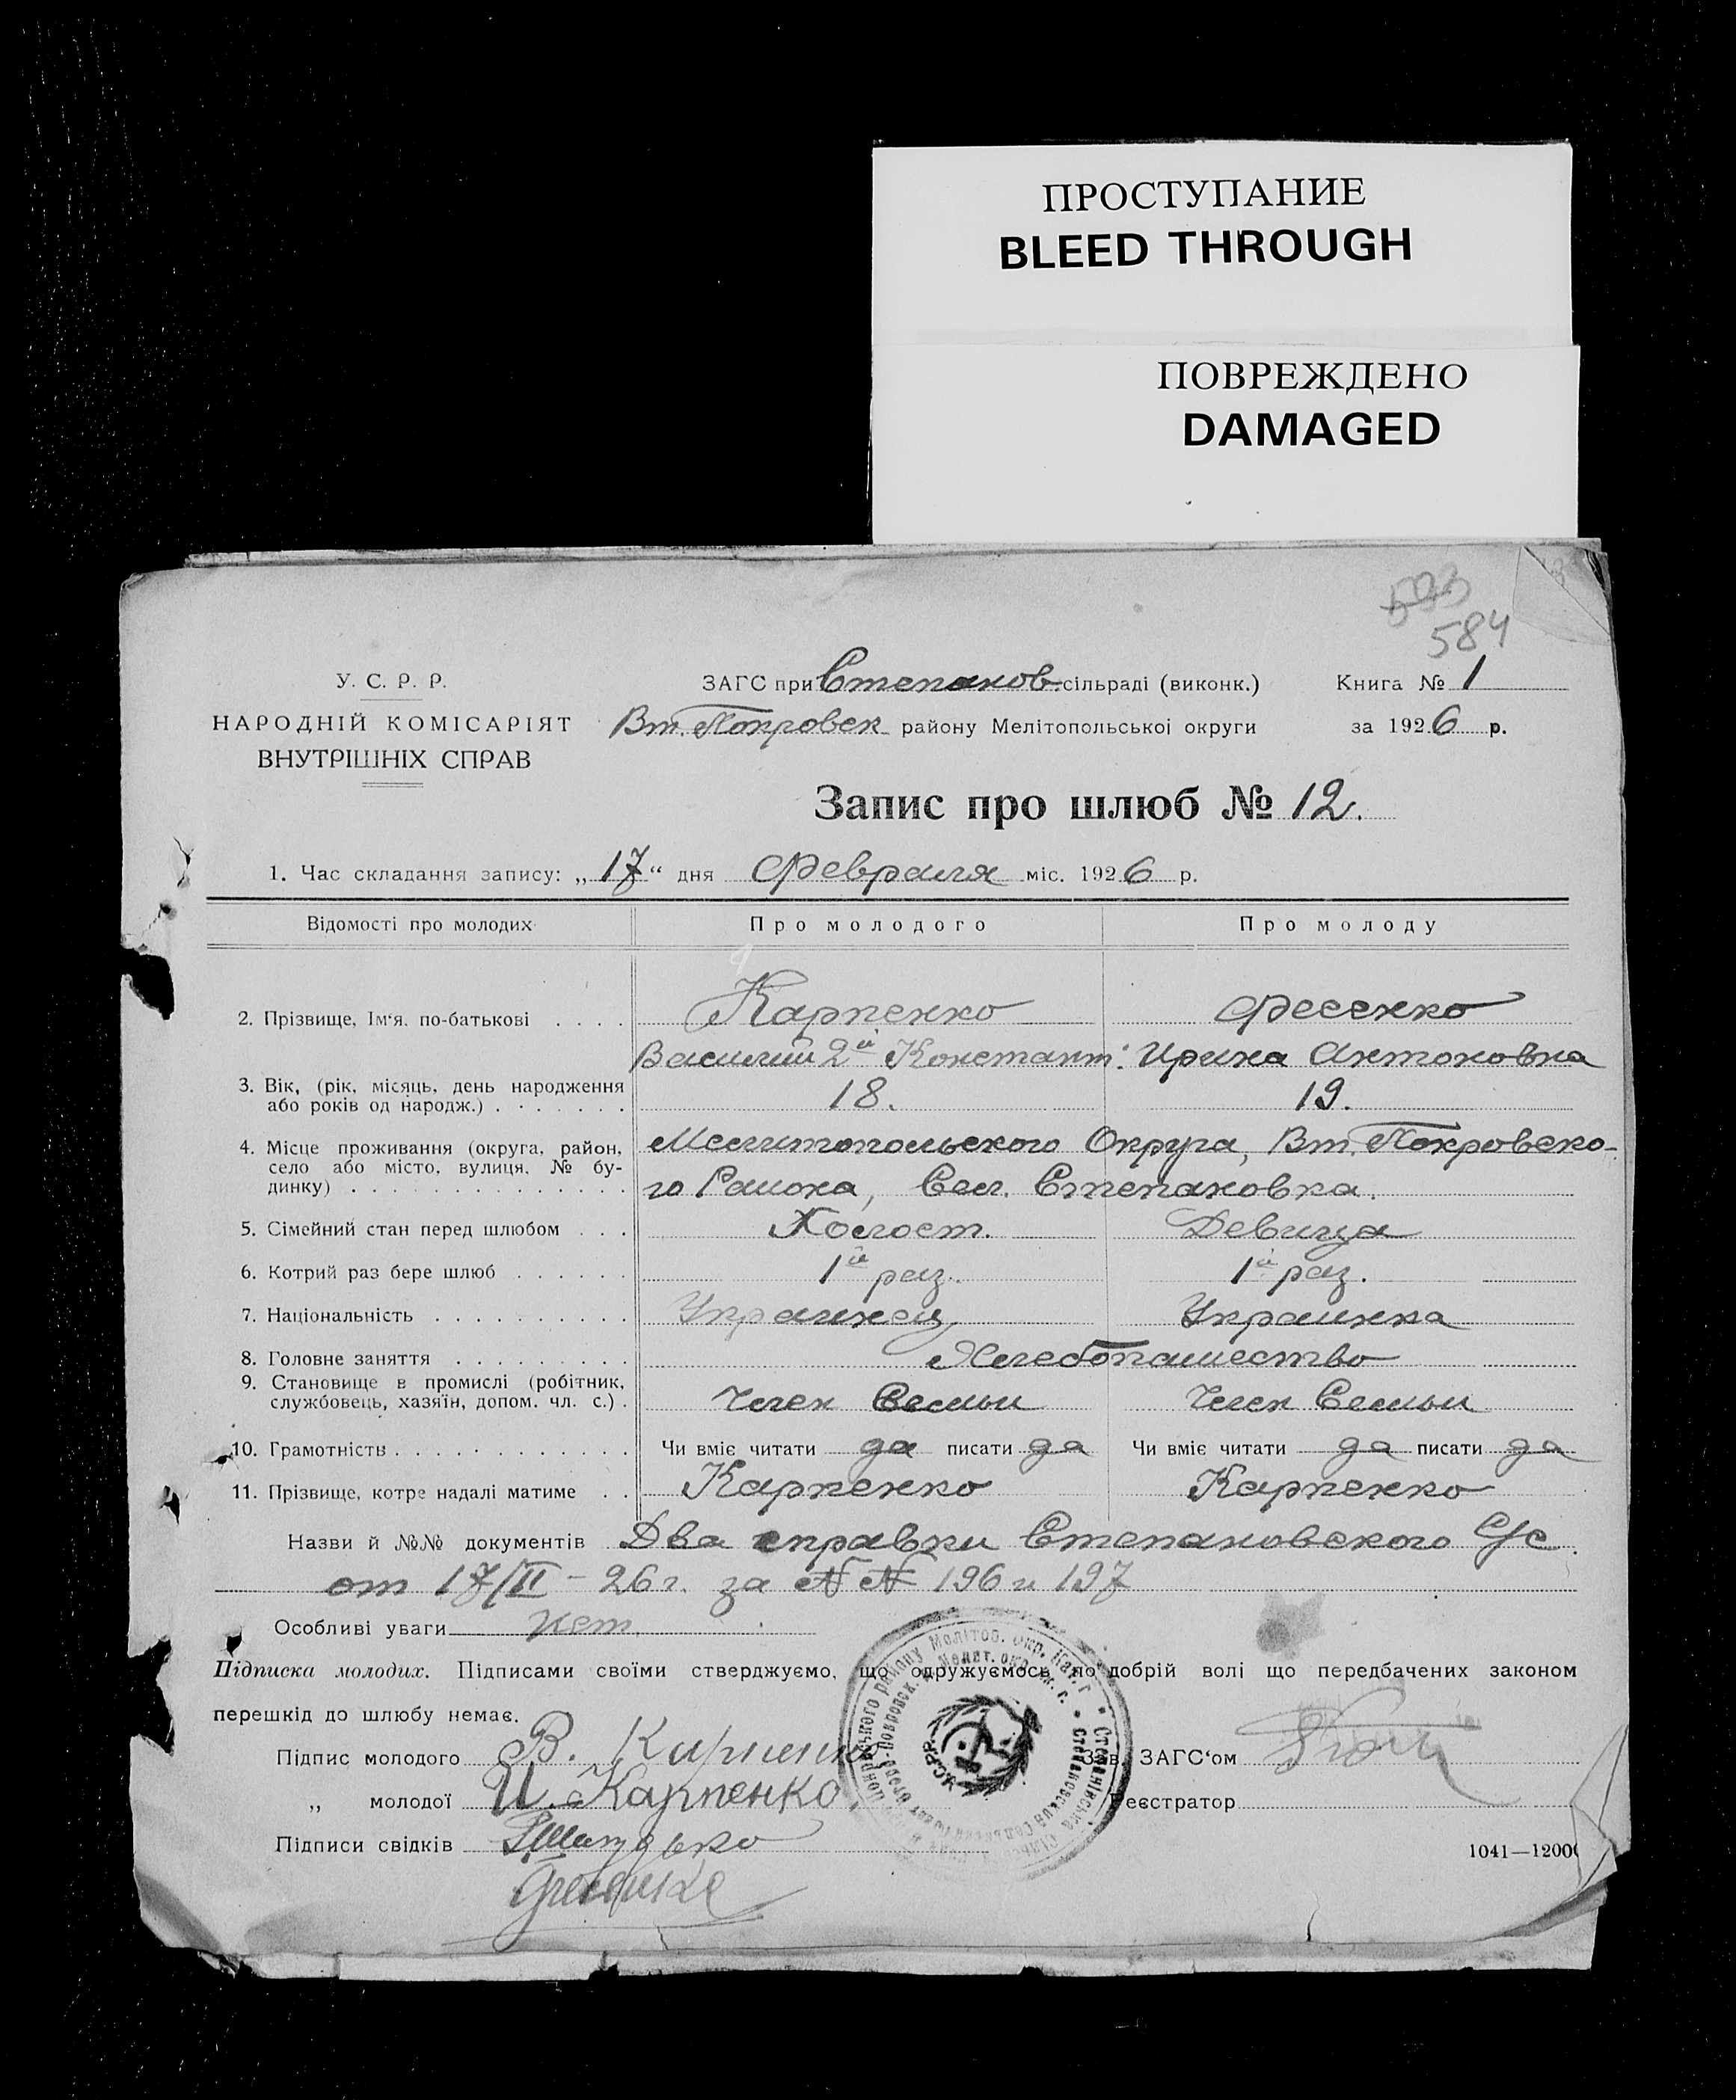 ПРОСТУПАНИЕ
BLEED THROUGH
ПОВРЕЖДЕНО
DAMAGED
593
584
У. С. Р. Р.
НАРОДНІЙ КОМІСАРІЯТ
ВНУТРІШНІХ СПРАВ
ЗАГС при Степанов. сільраді (виконк.)
Вт. Покровск району Мелітопольської округи
Книга № 1
за 1926 р.
Запис про шлюб № 12.
1. Час складання запису: „17“ дня Февраля міс. 1926 р.
Відомості про молодих Про молодого Про молоду
2. Прізвище, Ім‘я, по-батькові . . . . Карпенко Фесенко
Василий 2й Констант: Ирина Антоновна
3. Вік, (рік, місяць, день народження
або років од народж.) . . . . . . . 18. 19.
4. Місце проживання (округа, район,
село або місто, вулиця, № бу-
динку) . . . . . . . . . . . . . .
Мелитопольского Округа, Вт. Покровско-
го Района, Сел. Степановка.
5. Сімейний стан перед шлюбом . . . Холост. Девица
6. Котрий раз бере шлюб . . . . . . 1й раз. 1й раз.
7. Національність . . . . . . . . . . Украинец Украинка
8. Головне заняття . . . . . . . . . Хлебопашество
9. Становище в промислі (робітник,
службовець, хазяїн, допом. чл. с.) . Член Семьи Член Семьи
10. Грамотність . . . . . . . . . . . . Чи вміє читати да писати да Чи вміє читати да писати да
11. Прізвище, котре надалі матиме . . Карпенко Карпенко
Назви й №№ документів Два справки Степановского С/с.
от 17/II - 26 г. за №№ 196 и 197
Особливі уваги нет
Підписка молодих. Підписами своїми стверджуємо, що одружуємось по добрій волі що передбачених законом
перешкід до шлюбу немає.
Підпис молодого В. Карпенко
„ молодої И. Карпенко
Підписи свідків
Зав. ЗАГС‘ом
Реєстратор
У.С.Р.Р.
1041—12000